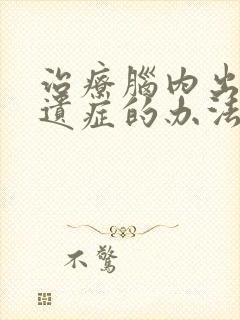 治療腦內出
遺症的办法
不驚